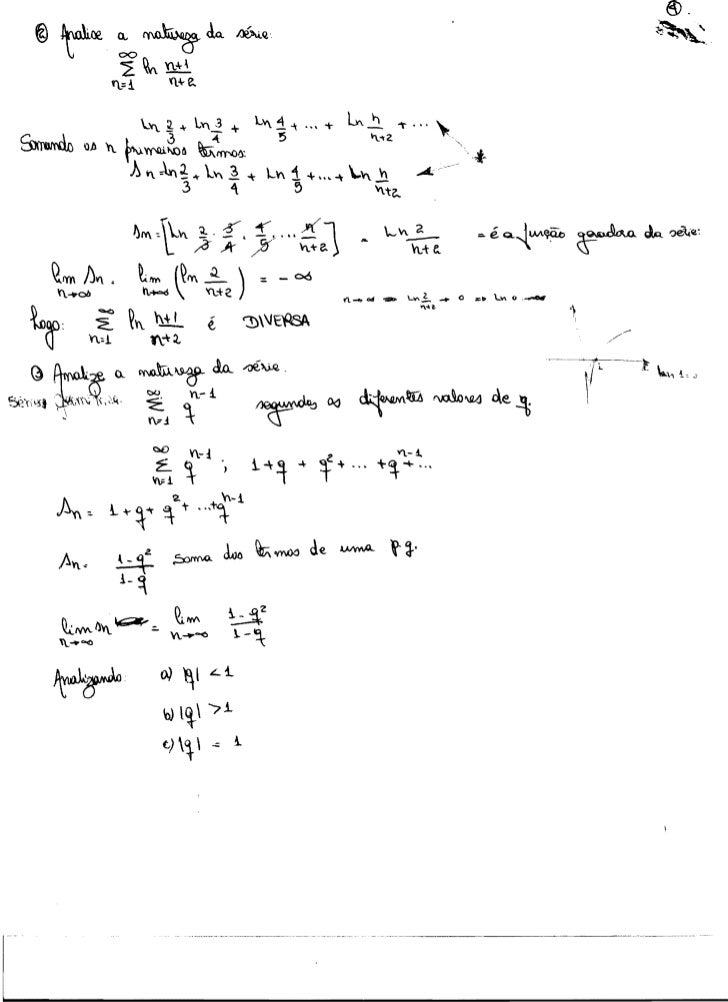 4.
② Analise a natureza da série:
∞
Σ ln n+1/n+2
n=1
Ln 2/3 + Ln 3/4 + Ln 4/5 + ... + Ln n/n+2 + ...
Somando os n primeiros termos:
Sn = Ln 2/3 + Ln 3/4 + Ln 4/5 + ... + Ln n/n+2
*
Sn = [Ln 2/3 · 3/4 · 4/5 ... n/n+2] = Ln 2/n+2 = é a função geradora da série:
lim n→∞ Sn = lim n→∞ (ln 2/n+2) = -∞
n→∞ ⇒ Ln 2/n+2 → 0 ⇒ Ln 0
Logo: ∞ Σ n=1 ln n+1/n+2 é DIVERSA
③ Analize a natureza da série.
∞ Σ n=1 q^n-1 segundos os diferentes valores de q.
∞ Σ n=1 q^n-1 ; 1+q + q² + ... + q^n-1 + ...
Sn = 1+q+ q² + ...+q^n-1
Sn = 1-q²/1-q Soma dos termos de uma p.g.
lim n→∞ Sn = lim n→∞ 1-q²/1-q
Analizando: a) |q| < 1
b) |q| > 1
c) |q| = 1